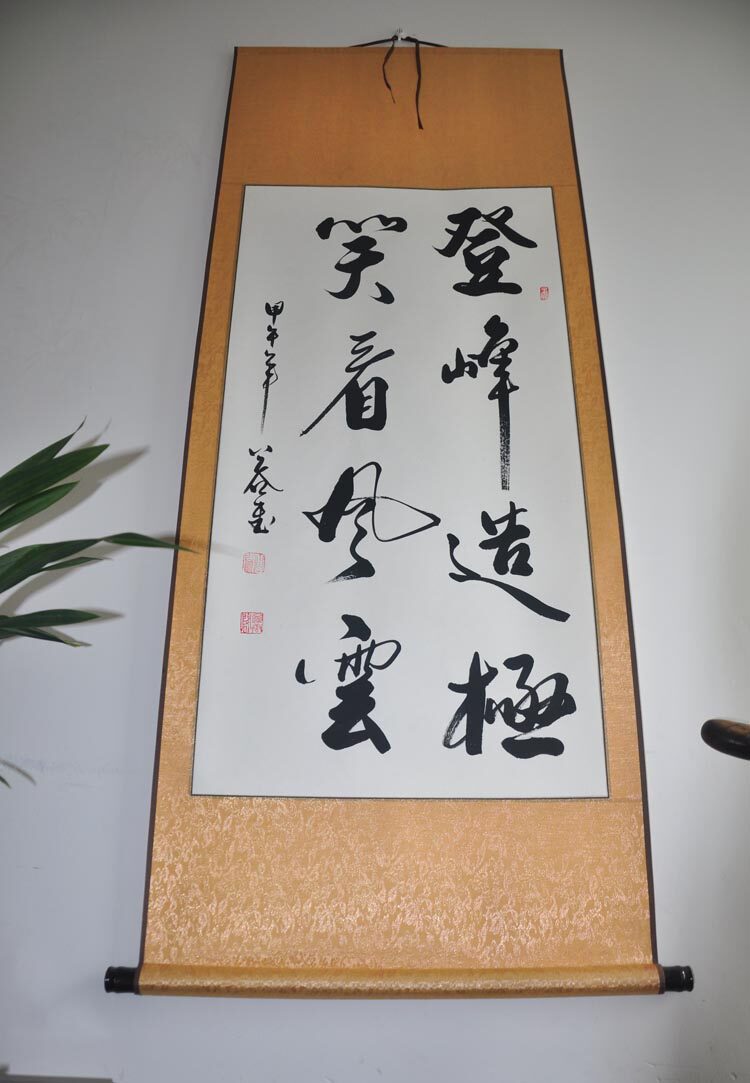 登峰造極
笑看风雲
甲午年